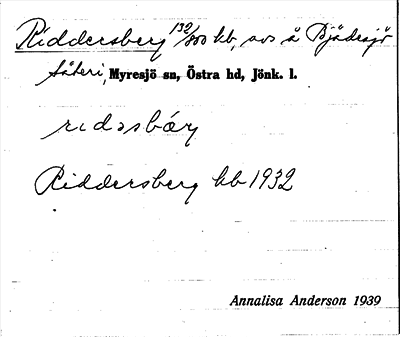 Riddersberg 132/800 kb, avs å Bjädesjö
Säteri, Myresjö sn, Östra hd, Jönk. l.
rıdəsbæ̣rj
Riddersberg kb 1932
Annalisa Anderson 1939